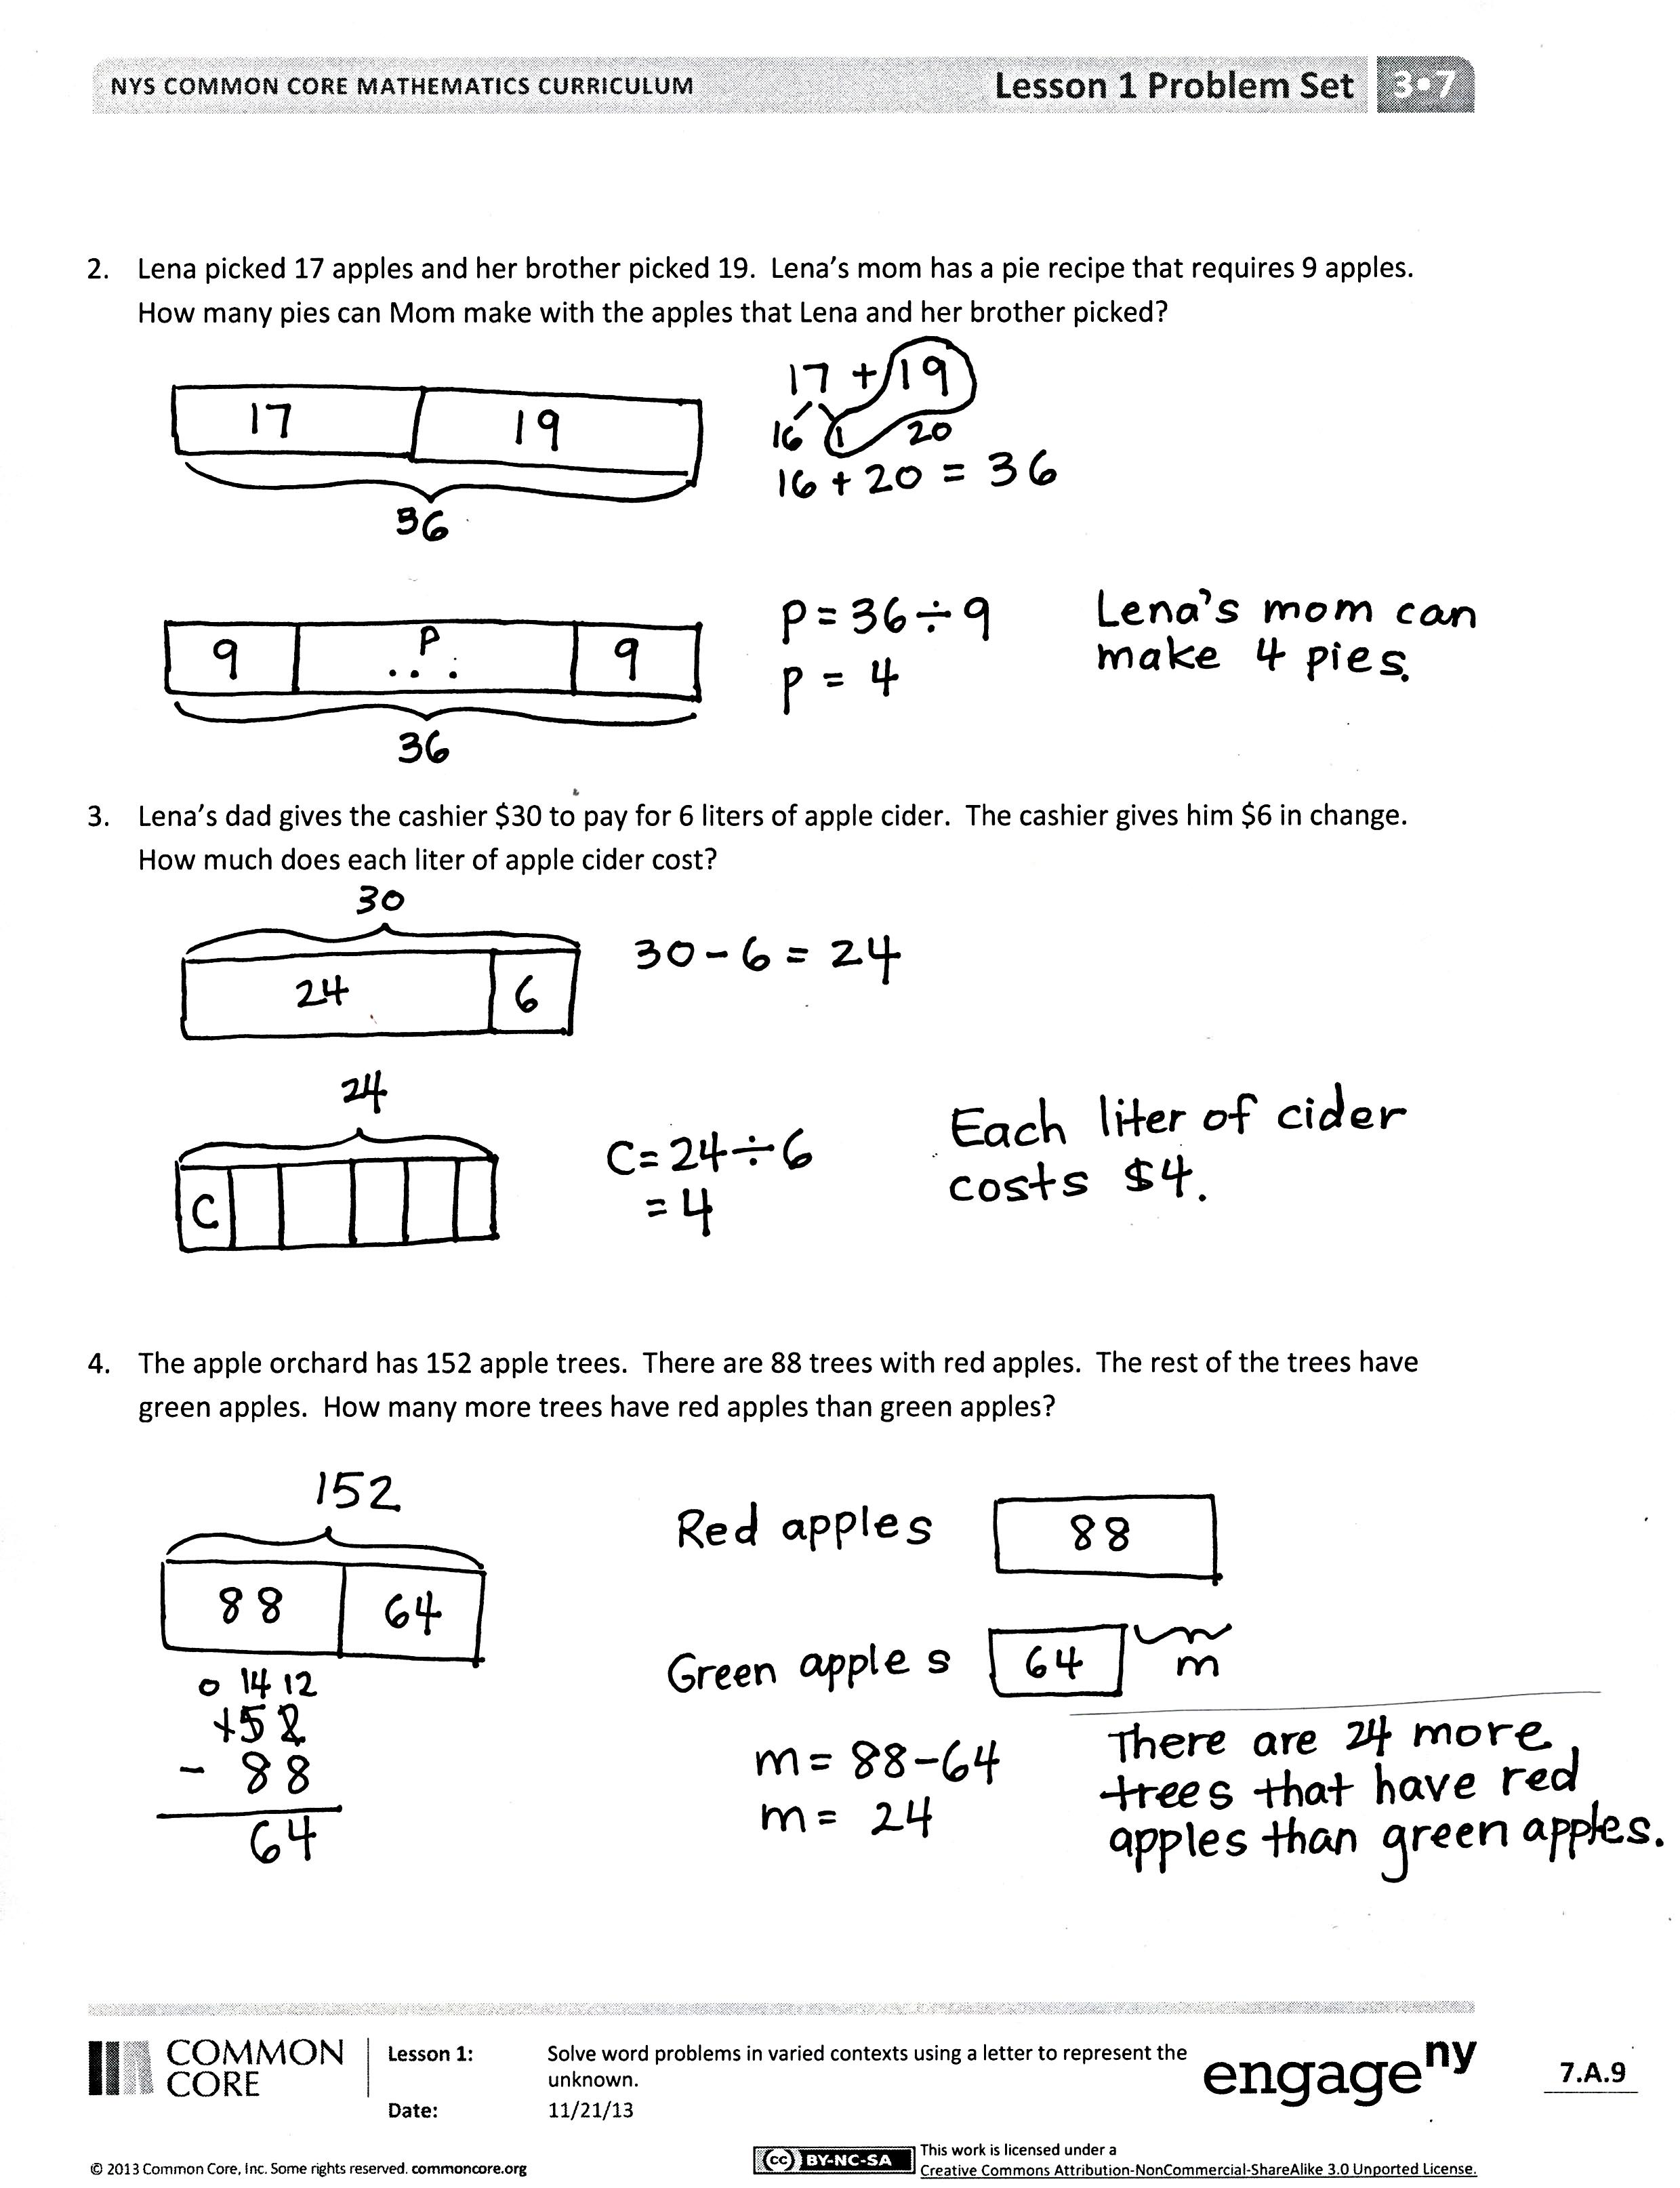 NYS COMMON CORE MATHEMATICS CURRICULUM
Lesson 1 Problem Set
3•7
2. Lena picked 17 apples and her brother picked 19. Lena's mom has a pie recipe that requires 9 apples.
How many pies can Mom make with the apples that Lena and her brother picked?
17 19
36
17 + 19
16 1 20
16 + 20 = 36
9 P ... 9
36
P = 36 ÷ 9
P = 4
Lena's mom can
make 4 pies.
3. Lena's dad gives the cashier $30 to pay for 6 liters of apple cider. The cashier gives him $6 in change.
How much does each liter of apple cider cost?
30
24 6
30 - 6 = 24
24
C
C = 24 ÷ 6
= 4
Each liter of cider
costs $4.
4. The apple orchard has 152 apple trees. There are 88 trees with red apples. The rest of the trees have
green apples. How many more trees have red apples than green apples?
152
88 64
0 14 12
152
- 88
64
Red apples 88
Green apples 64 m
m = 88 - 64
m = 24
There are 24 more
trees that have red
apples than green apples.
COMMON
CORE
Lesson 1:
Solve word problems in varied contexts using a letter to represent the
unknown.
Date:
11/21/13
engageny
7.A.9
© 2013 Common Core, Inc. Some rights reserved. commoncore.org
cc BY-NC-SA
This work is licensed under a
Creative Commons Attribution-NonCommercial-ShareAlike 3.0 Unported License.